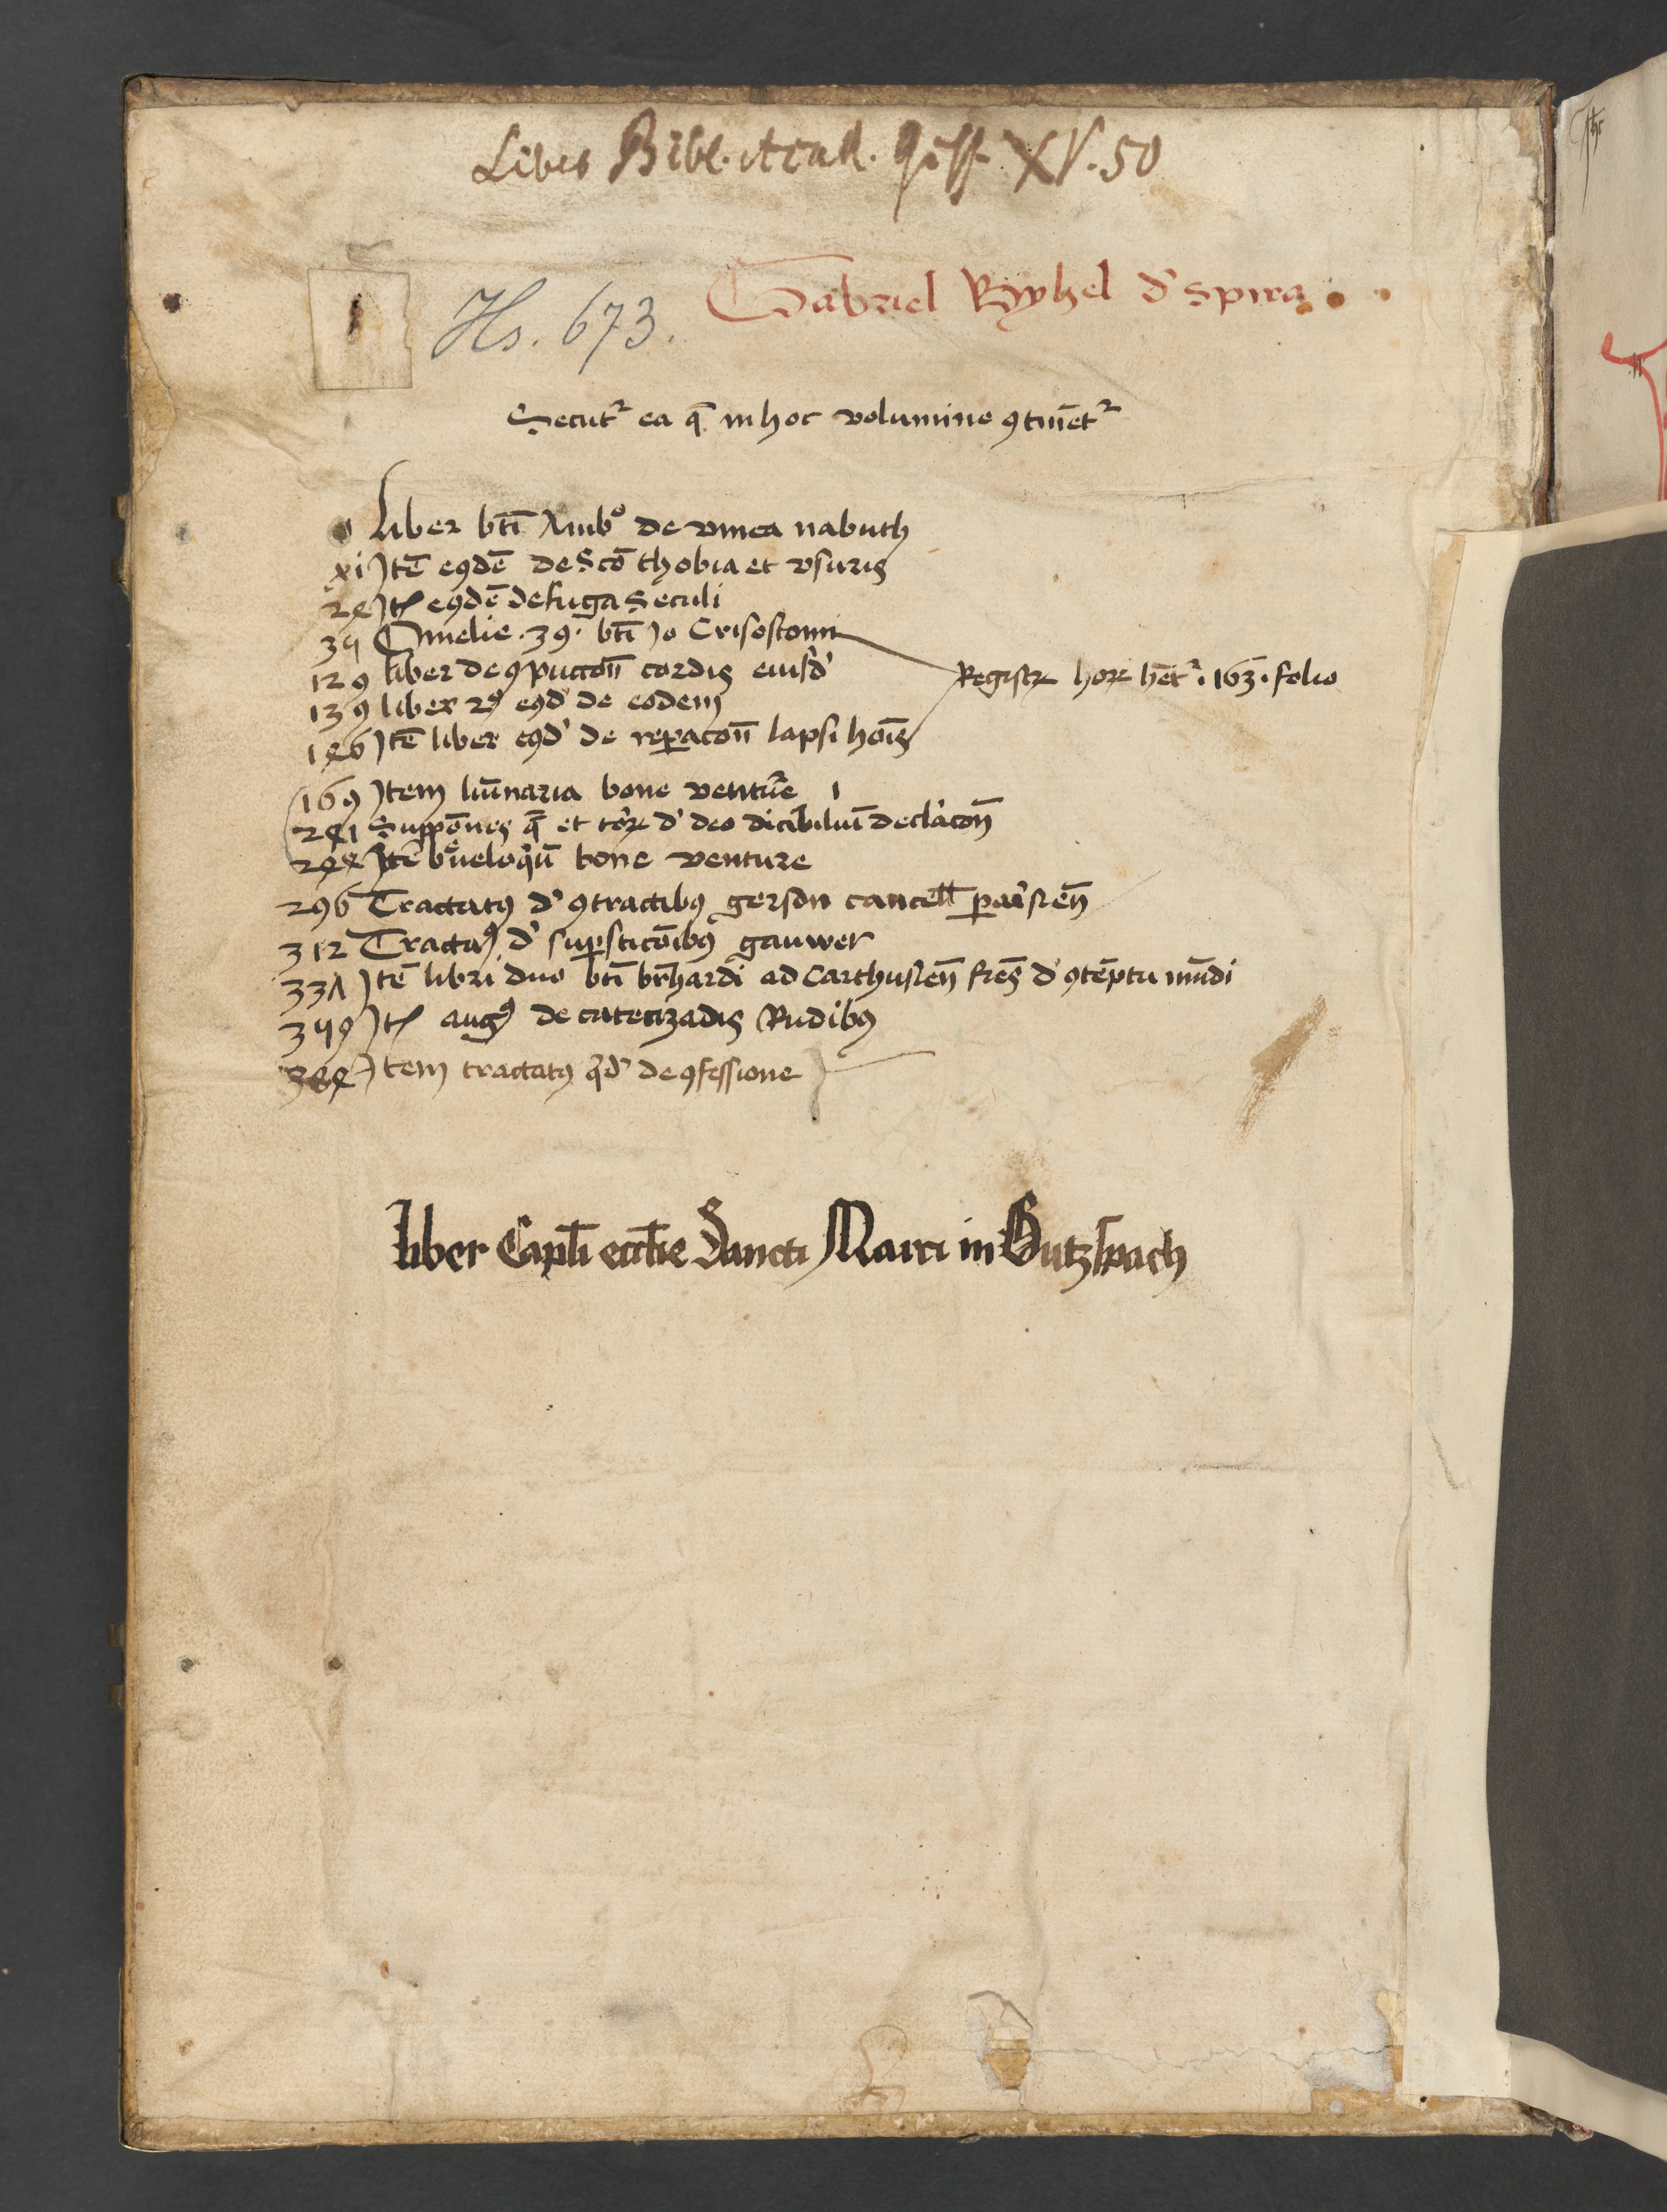 Liber Bibl. Acad. Giss. XV. 50
Hs. 673.
Gabriel Byhel d' spira
Secūt² ea q̄ in hoc volumine ꝯtinēt²
1 Liber bt̄i Amb° de vinea nabuth
xi Jtē eꝰdē de Sc̄o thobia et vsuris
24 Jt̄ eꝰdē de fuga seculi
35 Omelie . 39 . bt̄i Jo Crisostomi
129 liber de ꝯpuctōn cordis eiusd'
139 liber 2ꝰ eꝰd' de eodem
146 Jtē liber eꝰd' de rep̄acōn lapsi hoīs
Registꝝ hoꝝ hēt² . 163 . folio
169 Jtem lūinaria bone vent̄ure
241 Suppōnes q̄ et toꝝ d' deo dicibiliū declacōn
244 Jtē breueloqͥū bone venture
296 Tractatꝰ d' ꝯtractibꝰ gerson cancell ꝑaisień
312 Tractaꝰ d' suꝑsticōibꝰ gauwer
331 Jtē libri duo bt̄i br̄hardi ad Carthusień fr̄es d' ꝯtēptu mūdi
359 Jt̄ augꝰ de catecizādis Rudibꝰ
384 Jtem tractatꝰ qͥd' de ꝯfessione
liber Capl̄i eccl̄ie Sancti Marci in Butzspach